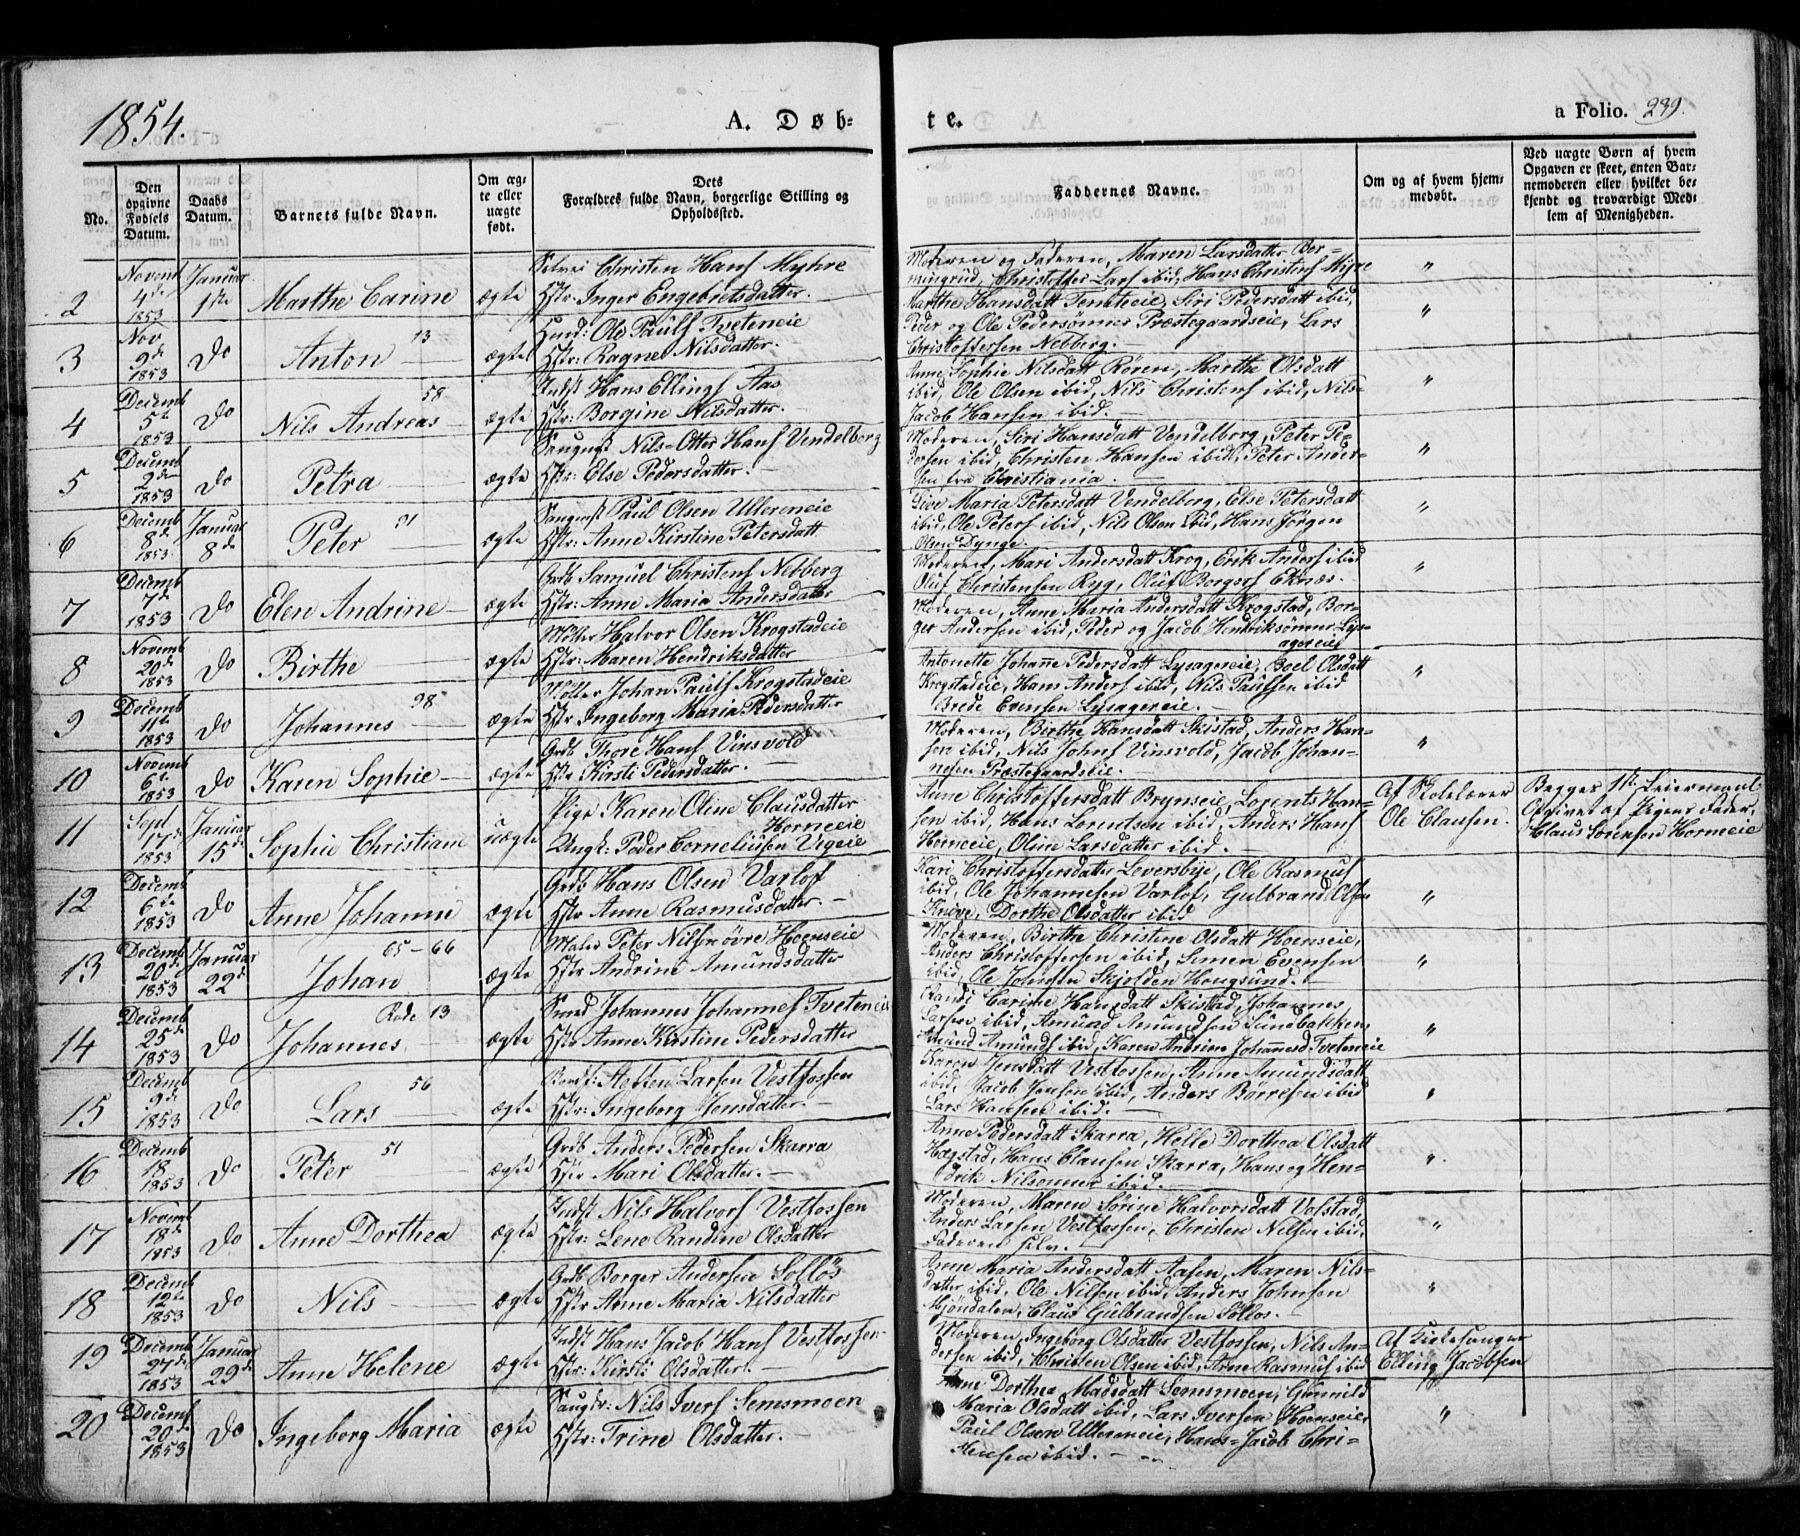 1854.
A. Døb-
te.
a Folio. 239.
No.
Den opgivne Fødsels Datum.
Daabs Datum.
Barnets fulde Navn.
Om ægte eller uægte født.
Dets Forældres fulde Navn, borgerlige Stilling og Opholdssted.
Faddernes Navne.
Om og af hvem hjemmedøbt.
Ved uægte Børn af hvem Opgaven er skeet, enten Barnemoderen eller hvilket bekjendt og troværdigt Medlem af Menigheden.
2 Novemb 4de 1853 Januar 1ste Marthe Carine ægte
Selvei Christen Hans Myhre
Hstr: Inger Engebretsdatter.
Moderen og Faderen, Maren Larsdatter Bor-
mingrud, Christoffer Lars ibid, Hans Christens Myre "
3 Nov 9de 1853 Do Anton 13 ægte
Huusd: Ole Pauls Tveteneie
Hstr: Ragne Nilsdatter.
Marthe Hansdatt Temteeie, Siri Pedersdatt ibid,
Peder og Ole Pedersønner Præstegaardseie, Lars
Christoffersen Nebberg. "
4 Decemb 5te 1853 Do Nils Andreas 58 ægte
Indst Hans Ellings Aas
Hstr: Borgine Nilsdatter.
Anne Sophie Nilsdatt Røren, Marthe Olsdatt
ibid, Ole Olsen ibid, Nils Christens ibid, Nils
Jacob Hansen ibid. "
5 Decemb 2den 1853 Do Petra ægte
Saugmst Nils Otter Hans Vendelborg
Hstr: Else Pedersdatter.
Moderen, Siri Hansdatt Vendelborg, Peter Pe-
dersen ibid, Christen Hansen ibid, Peter Ander-
sen fra Christiania. "
6 Decemb 8de 1853 Januar 8de Peter 91 ægte
Saugmst Paul Olsen Ullereneie
Hstr: Anne Kirstine Petersdatt
Live Maria Petersdatt Vendelberg, Else Petersdatt
ibid, Ole Peters ibid, Nils Olsen ibid, Hans Jörgen
Olsen Dynge. "
7 Decemb 7de 1853 Do Elen Andrine ægte
Grdb Samuel Christens Nebberg
Hstr: Anne Maria Andersdatter
Moderen, Mari Andersdatt Krog, Erik Anders ibid
Oluf Christensen Ryg, Oluf Borgers Eknæs. "
8 Novemb 20de 1853 Do Birthe ægte
Möller Halvor Olsen Krogstadeie
Hstr: Maren Hendriksdatter
Moderen, Anne Maria Andersdatt Krogstad, Bor-
ger Andersen ibid, Peder og Jacob Hendriksönner Lys-
agereie "
9 Decemb 11te 1853 Do Johannes 98 ægte
Möller Johan Pauls Krogstadeie
Hstr Ingeborg Maria Pedersdatter
Antonette Johanne Pedersdatt Lysagereie, Boel Olsdatt
Krogstadeie, Hans Anders ibid, Nils Paulsen ibid
Brede Evensen Lysagereie. "
10 Novemb 6te 1853 Do Karen Sophie ægte
Grdb Thore Hans Vinsvold
Hstr Kirsti Pedersdatter.
Moderen, Birthe Hansdatt Skistad, Anders Han-
sen ibid, Nils Johns Vinsvold, Jacob Johan-
nesen Præstegaardseie. "
11 Sept 17de 1853 Januar 15de Sophie Christiane uægte
Pige Karen Oline Clausdatter
Horneeie
Ungk: Peder Corneliusen Vegeie
Anne Christoffersdatt Brynseie, Lorents Han-
sen ibid, Hans Lorentsen ibid, Anders Hans
Horneeie, Oline Larsdatter ibid.
Af Skolelærer
Ole Clausen.
Begges 1ste Leiermaal
Opgivet af Pigens Fader,
Claus Sörensen Horneeie
12 Decemb 6te 1853 Do Anne Johanne ægte
Grdb Hans Olsen Varlof
Hstr Anne Rasmusdatter.
Kari Christoffersdatter Leversbye, Ole Rasmus
ibid, Ole Johannesen Varlof, Gulbrand Olsen
Knive, Dorthe Olsdatter ibid "
13 Decemb 20de 1853 Januar 22de Johan 65-66 ægte
Maler Peter Nilsen övre Hoenseie
Hstr Andrine Amundsdatter
Moderen, Birthe Christine Olsdatt Hoenseie,
Anders Christoffersen ibid, Simen Evensen
ibid, Ole Johnsen Skjolden Hougsund. "
14 Decemb 25de 1853 Do Johannes Rode 13 ægte
Smed Johannes Johannes Tveteneie
Hstr Anne Kirstine Pedersdatter
Randi Carine Hansdatt Skistad, Johannes
Larsen ibid, Amund Amundsen Sundbakken,
Amund Amunds ibid, Karen Andrine Johannesd Tveteneie "
15 Decemb 9de 1853 Do Lars 56 ægte
Asten Larsen Vestfossen
Hstr: Ingeborg Jensdatter.
Karen Jensdatt Vestfossen, Anne Amundsdatt
ibid, Jacob Jensen ibid, Anders Börresen ibid
Lars Hansen ibid. "
16 Decemb 18 1853 Do Peter 51 ægte
Grdb Anders Pedersen Skarra
Hstr Mari Olsdatter.
Anne Pedersdatt Skarra, Helle Dorthea Olsdatt
Hægstad, Hans Clausen Skarra, Hans og Hen-
drik Nilsönner ibid. "
17 Novemb 18de 1853 Do Anne Dorthea ægte
Indst Nils Halvors Vestfossen
Hstr: Lene Randine Olsdatter
Moderen, Maren Sörine Halvorsdatt Vofstad,
Anders Larsen Vestfossen, Christen Nilsen ibid,
Faderen selv. "
18 Decemb 12te 1853 Do Nils ægte
Grdb Borger Andersen Solløs
Hstr Anne Maria Nilsdatter
Anne Maria Andersdatt Aasen, Maren Nils-
datter ibid, Ole Nilsen ibid, Anders Johnsen
Mjöndalen, Claus Gulbrandsen Solløs. "
19 Decemb 27de 1853 Januar 29de Anne Helene ægte
Indst Hans Jacob Hans Vestfossen
Hstr: Kirsti Olsdatter.
Moderen, Ingeborg Olsdatter Vestfossen, Nils An-
dersen ibid, Christen Olsen ibid, Arne Rasmus ibid
Af Kirkesanger
Elling Jacobsen
20 Decemb 20de 1853 Do Ingeborg Maria ægte
Nils Ivers Semsmoen
Hstr: Trine Olsdatter.
Anne Dorthea Madsdatt Semsmoen, Gunnild
Maria Olsdatt ibid, Lars Iversen Hoenseie,
Paul Olsen Ullereneie, Hans Jacob Chri-
stensen ibid. "